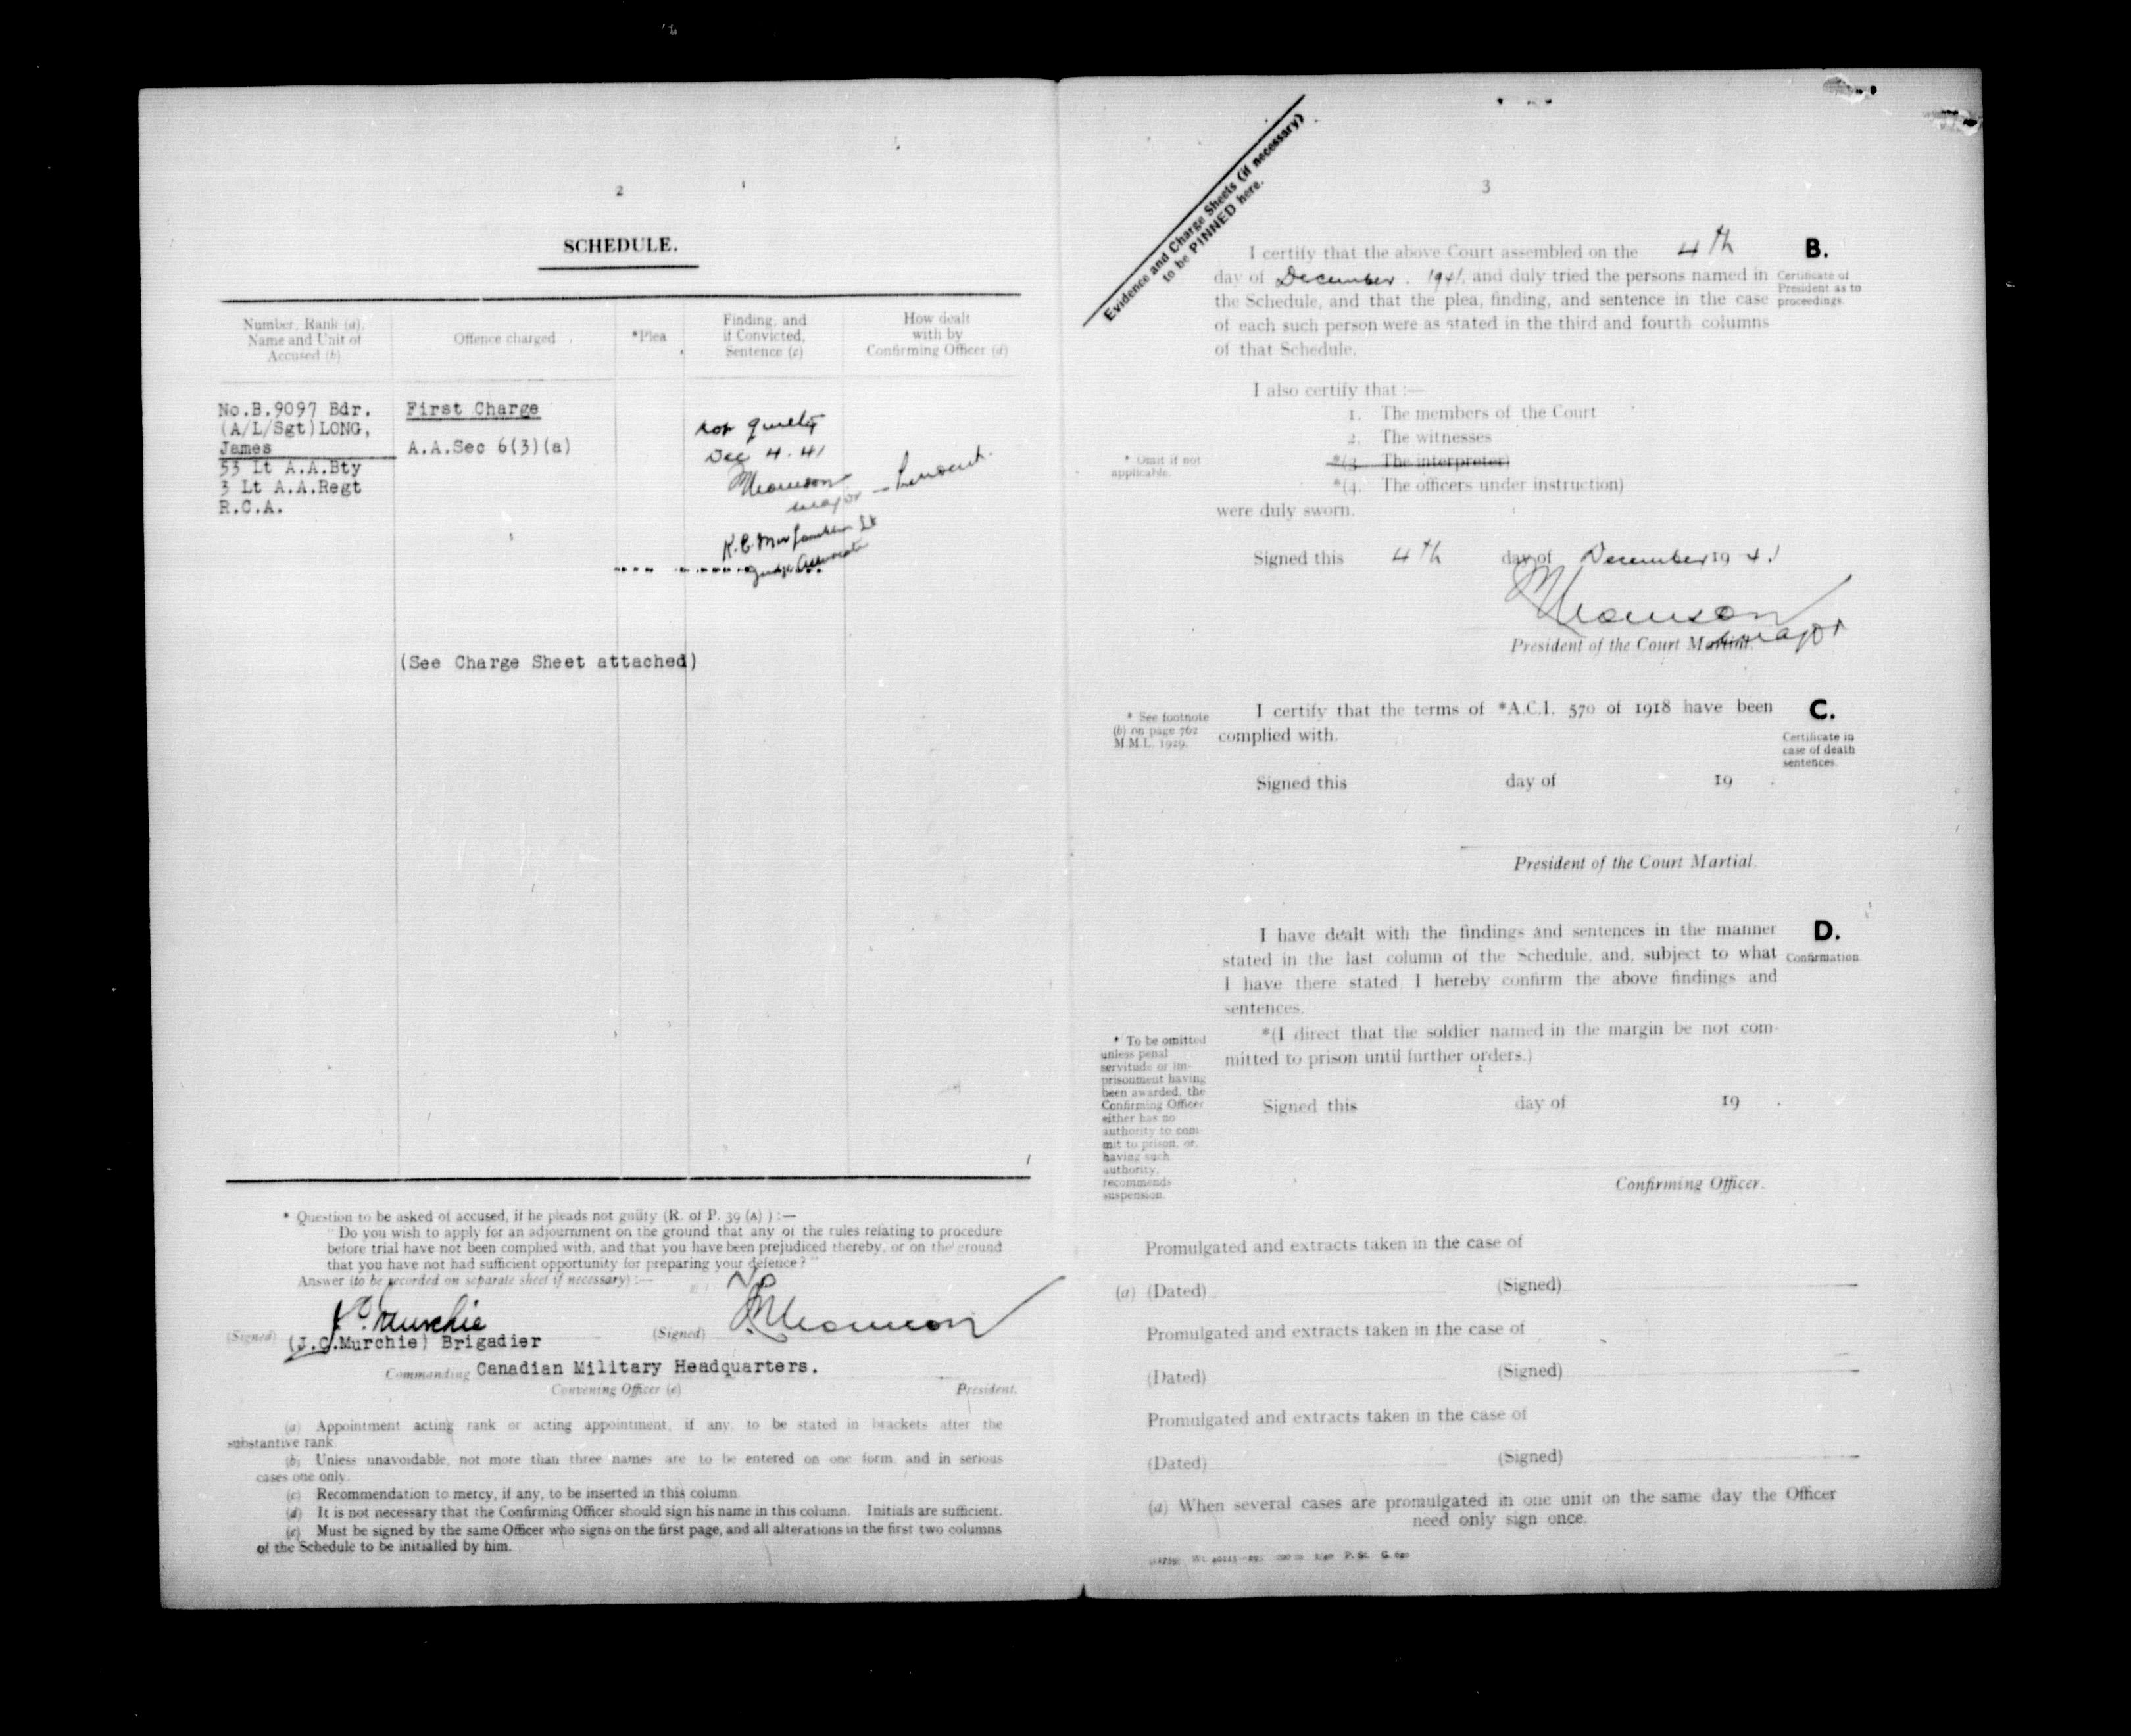 2
SCHEDULE.
Number, Rank (a), Name and Unit of Accused (b)
Offence charged
*Plea
Finding, and if Convicted, Sentence (c)
How dealt with by Confirming Officer (d)
No.B.9097 Bdr.
(A/L/Sgt)LONG,
James
53 Lt A.A.Bty
3 Lt A.A.Regt
R.C.A.
First Charge
A.A.Sec 6(3)(a)
not guilty
Dec 4. 41
Major - President.
Lt
Judge Advocate
(See Charge Sheet attached)
* Question to be asked of accused, if he pleads not guilty (R. of P. 39 (A) ) :—
"Do you wish to apply for an adjournment on the ground that any of the rules relating to procedure
before trial have not been complied with, and that you have been prejudiced thereby, or on the ground
that you have not had sufficient opportunity for preparing your defence?"
Answer (to be recorded on separate sheet if necessary) :—
(Signed) J.C. Murchie
(J.C.Murchie) Brigadier
(Signed)
Commanding Canadian Military Headquarters.
Convening Officer (e)
President.
(a) Appointment acting rank or acting appointment, if any, to be stated in brackets after the
substantive rank.
(b) Unless unavoidable, not more than three names are to be entered on one form and in serious
cases one only.
(c) Recommendation to mercy, if any, to be inserted in this column.
(d) It is not necessary that the Confirming Officer should sign his name in this column. Initials are sufficient.
(e) Must be signed by the same Officer who signs on the first page, and all alterations in the first two columns
of the Schedule to be initialled by him.
Evidence and Charge Sheets (if necessary)
to be PINNED here.
3
I certify that the above Court assembled on the 4th
day of December. 1941, and duly tried the persons named in
the Schedule, and that the plea, finding, and sentence in the case
of each such person were as stated in the third and fourth columns
of that Schedule.
B.
Certificate of
President as to
proceedings.
I also certify that :—
1. The members of the Court
2. The witnesses
* Omit if not
applicable.
*(3. The interpreter)
*(4. The officers under instruction)
were duly sworn.
Signed this 4th day of December 1941
Major
President of the Court Martial.
* See footnote
(b) on page 762
M.M.L. 1929.
I certify that the terms of *A.C.I. 570 of 1918 have been
complied with.
C.
Certificate in
case of death
sentences.
Signed this day of 19 .
President of the Court Martial.
I have dealt with the findings and sentences in the manner
stated in the last column of the Schedule, and, subject to what
I have there stated, I hereby confirm the above findings and
sentences.
D.
Confirmation.
*(I direct that the soldier named in the margin be not com-
mitted to prison until further orders.)
* To be omitted
unless penal
servitude or im-
prisonment having
been awarded, the
Confirming Officer
either has no
authority to com-
mit to prison, or,
having such
authority,
recommends
suspension.
Signed this day of 19 .
Confirming Officer.
Promulgated and extracts taken in the case of
(a) (Dated) (Signed)
Promulgated and extracts taken in the case of
(Dated) (Signed)
Promulgated and extracts taken in the case of
(Dated) (Signed)
(a) When several cases are promulgated in one unit on the same day the Officer
need only sign once.
P. St. G. 620